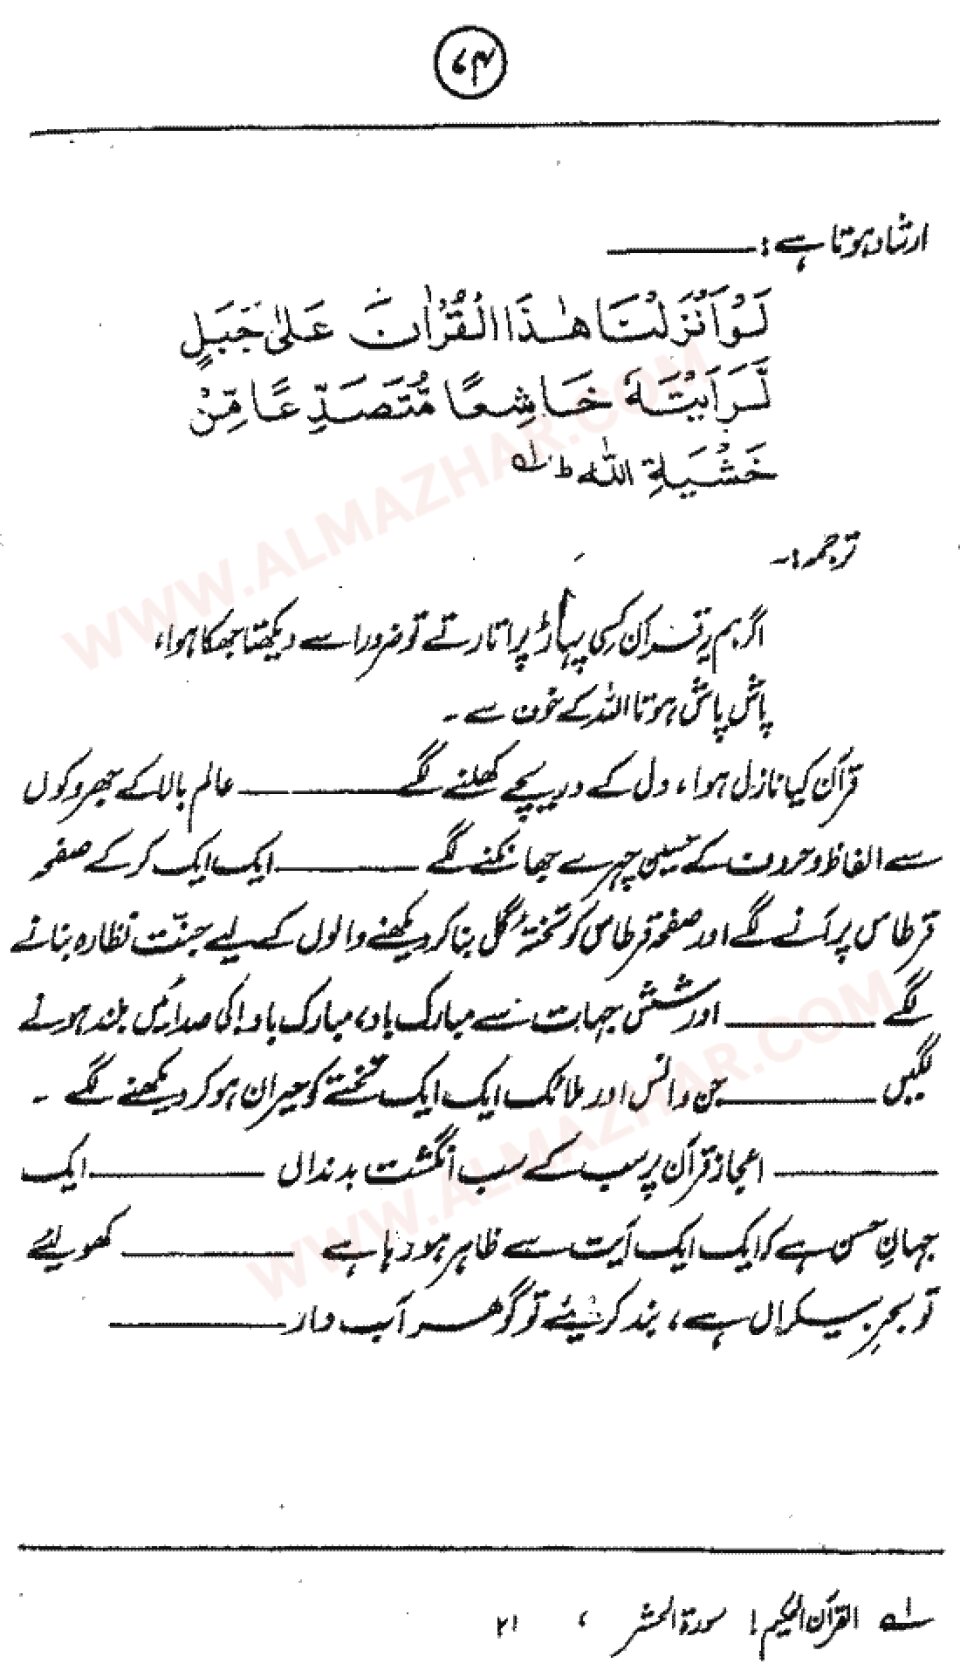 ۷۴
ارشاد ہوتا ہے :
لَوْ اَنْزَلْنَا هٰذَا الْقُرْاٰنَ عَلٰی جَبَلٍ
لَّرَاَيْتَهٗ خَاشِعًا مُّتَصَدِّعًا مِّنْ
خَشْيَةِ اللّٰهِ ط لہ
ترجمہ :۔
اگر ہم یہ قرآن کسی پہاڑ پر اتارتے تو ضرور اسے دیکھتا جھکا ہوا،
پاش پاش ہوتا اللہ کے خوف سے ۔
قرآن کیا نازل ہوا ، دل کے دریچے کھلنے لگے ——— عالم بالا کے جھروکوں
سے الفاظ و حروف کے حسین چہرے جھانکنے لگے ——— ایک ایک کر کے صفحہ
قرطاس پر آنے لگے اور صفحۂ قرطاس کو تختۂ گل بنا کر دیکھنے والوں کے لیے جنّت نظارہ بنانے
لگے ——— اور شش جہات سے مبارک باد، مبارک باد! کی صدائیں بلند ہونے
لگیں ——— جن و انس اور ملائک ایک ایک تختے کو حیران ہو کر دیکھنے لگے ۔
——— اعجاز قرآن پر سب کے سب انگشت بدنداں ——— ایک
جہانِ حسن ہے کہ ایک ایک آیت سے ظاہر ہو رہا ہے ——— کھولیئے
تو بحرِ بیکراں ہے ، بند کر لیئے تو گوھر آب دار ———
لہ القرآن الحکیم ! سورۃ الحشر ، ۲۱
WWW.ALMAZHAR.COM
WWW.ALMAZHAR.COM